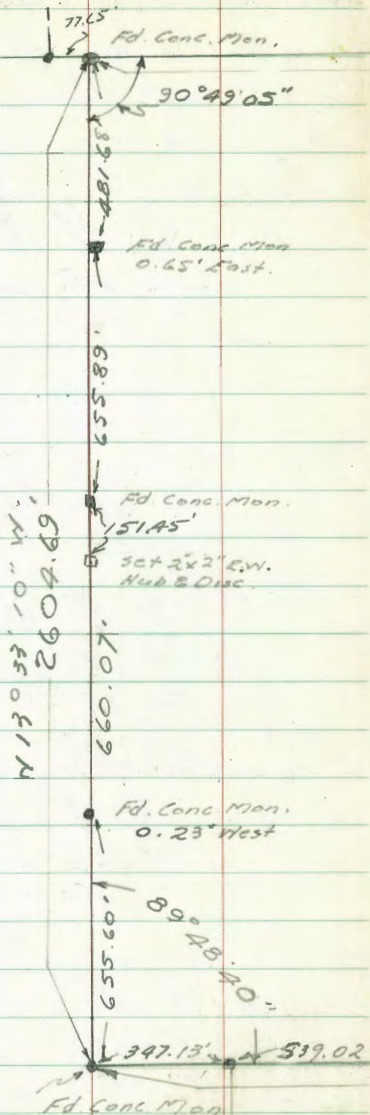 77.65'
Fd. Conc. Mon.
90°49'05"
481.68'
Fd Conc Mon
0.65' East.
655.89'
Fd. Conc. Mon.
151.45'
Set 2"x2" R.W.
Hub & Disc
N 13° 33' 10" W
2604.69'
660.07'
Fd. Conc Mon.
0.23' West
89° 48' 40"
655.60'
347.13'
539.02
Fd. Conc Mon